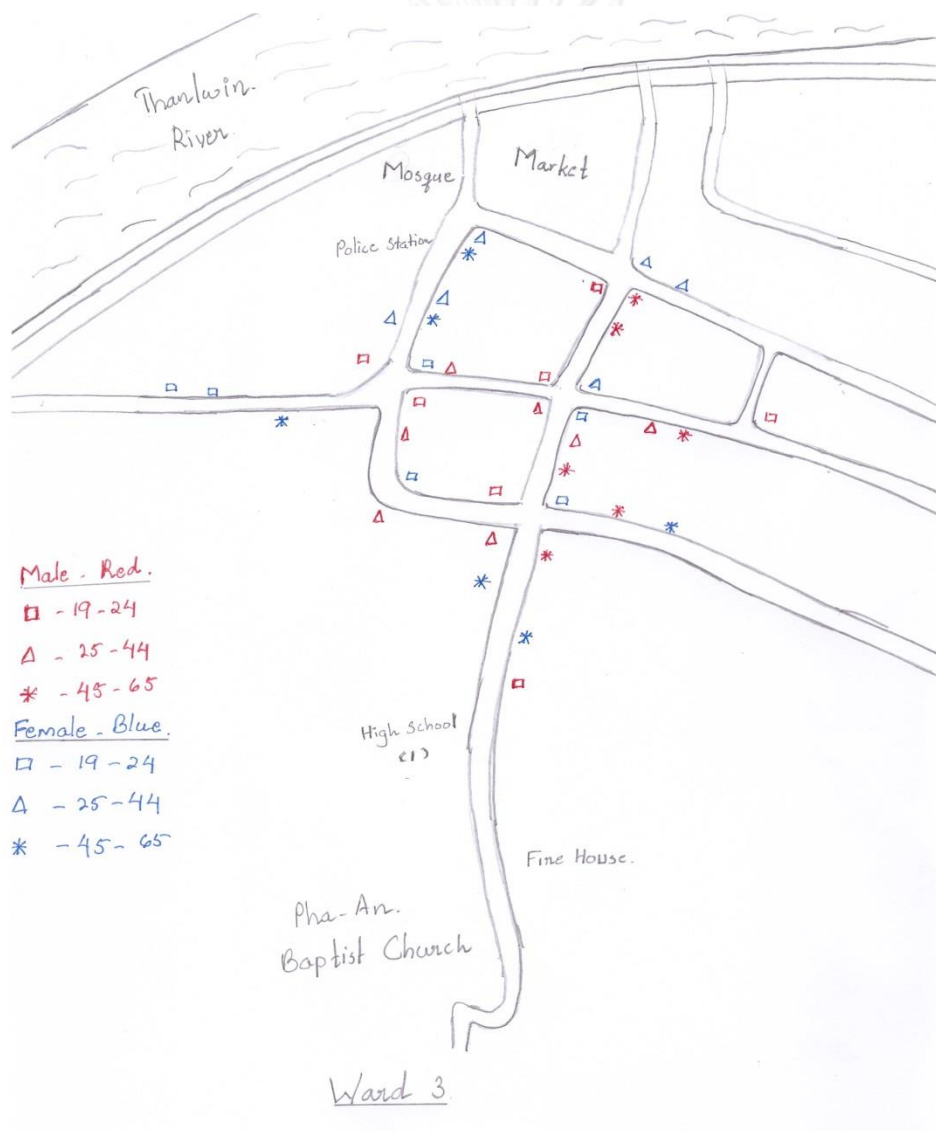 Thanlwin
River
Mosque
Market
Police Station
Male - Red.
□ - 19-24
Δ - 25-44
* - 45-65
Female - Blue.
□ - 19-24
Δ - 25-44
* - 45-65
High School
(1)
Fire House.
Pha-An.
Baptist Church
Ward 3